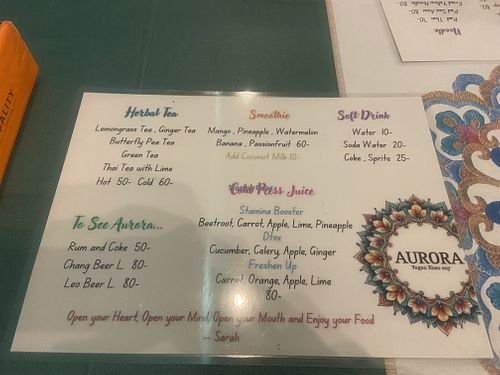 Herbal Tea
Lemongrass Tea . Ginger Tea
Butterfly Pea Tea
Green Tea
Thai Tea with Lime
Hot 50- Cold 60-
Smoothie
Mango . Pineapple . Watermelon
Banana . Passionfruit 60-
Add Coconut Milk 10-
Soft Drink
Water 10-
Soda Water 20-
Coke . Sprite 25-
Press Juice
Stamina Booster
Beetroot, Carrot, Apple, Lime, Pineapple
Dtox
Cucumber, Celery, Apple, Ginger
Freshen Up
Carrot, Orange, Apple, Lime
80-
To See Aurora...
Rum and Coke 50-
Chang Beer L. 80-
Leo Beer L. 80-
AURORA
Open your Heart, Open your Mind, Open your Mouth and Enjoy your Food
- Sarah
Noodle
Pad Thai 70-
Pad See Aew